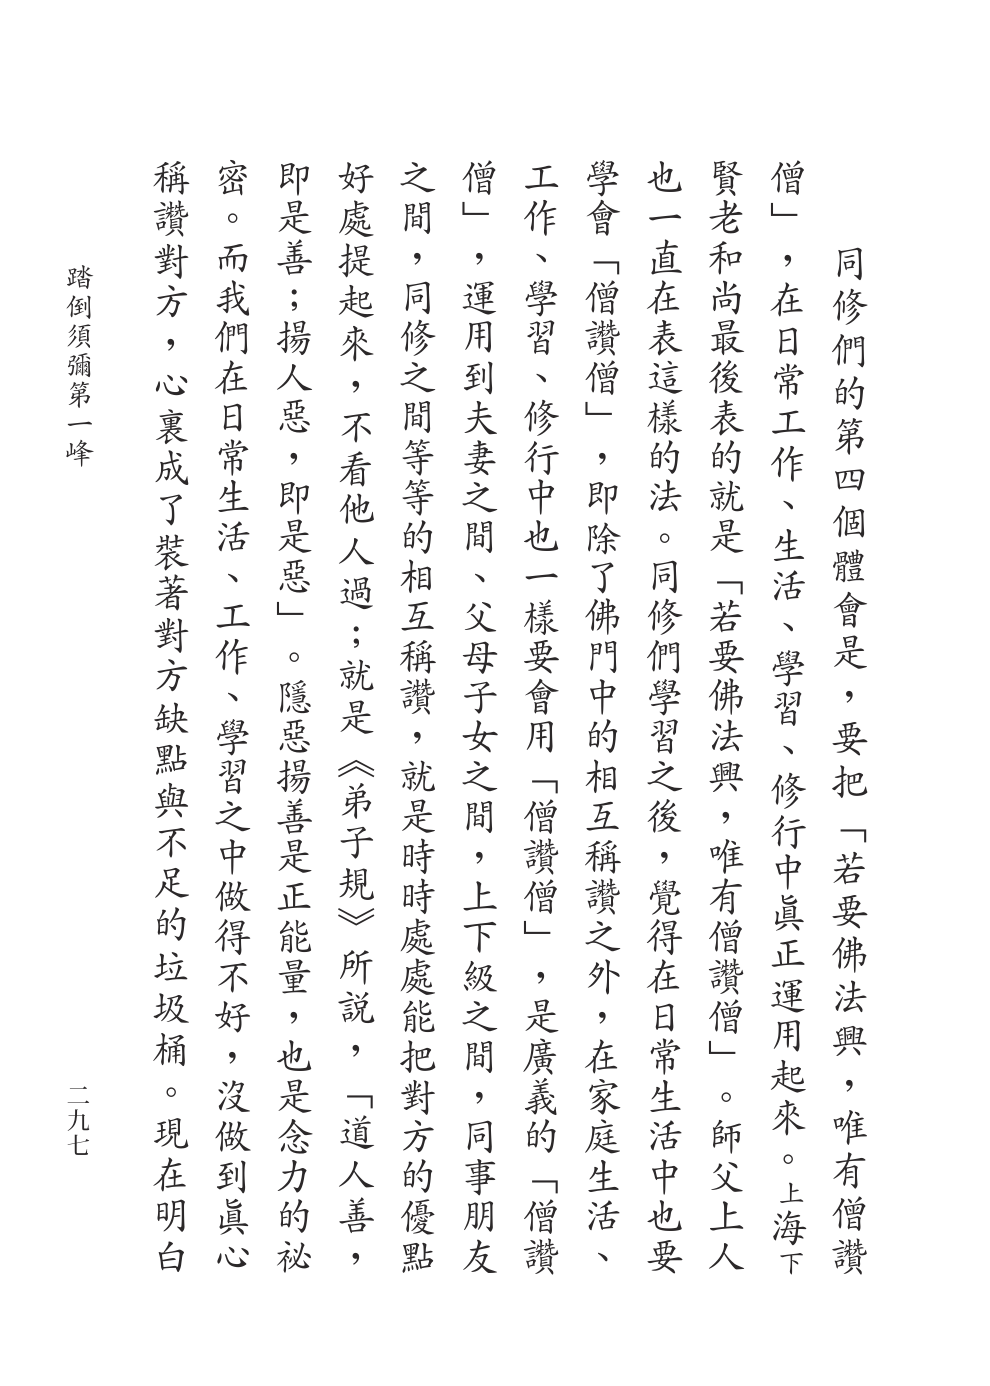 同修們的第四個體會是，要把「若要佛法興，唯有僧讚
僧」，在日常工作、生活、學習、修行中眞正運用起來。上海下
賢老和尚最後表的就是「若要佛法興，唯有僧讚僧」。師父上人
也一直在表這樣的法。同修們學習之後，覺得在日常生活中也要
學會「僧讚僧」，即除了佛門中的相互稱讚之外，在家庭生活、
工作、學習、修行中也一樣要會用「僧讚僧」，是廣義的「僧讚
僧」，運用到夫妻之間、父母子女之間，上下級之間，同事朋友
之間，同修之間等等的相互稱讚，就是時時處處能把對方的優點
好處提起來，不看他人過；就是《弟子規》所說，「道人善，
即是善；揚人惡，即是惡」。隱惡揚善是正能量，也是念力的祕
密。而我們在日常生活、工作、學習之中做得不好，沒做到眞心
稱讚對方，心裏成了裝著對方缺點與不足的垃圾桶。現在明白
踏倒須彌第一峰
二九七